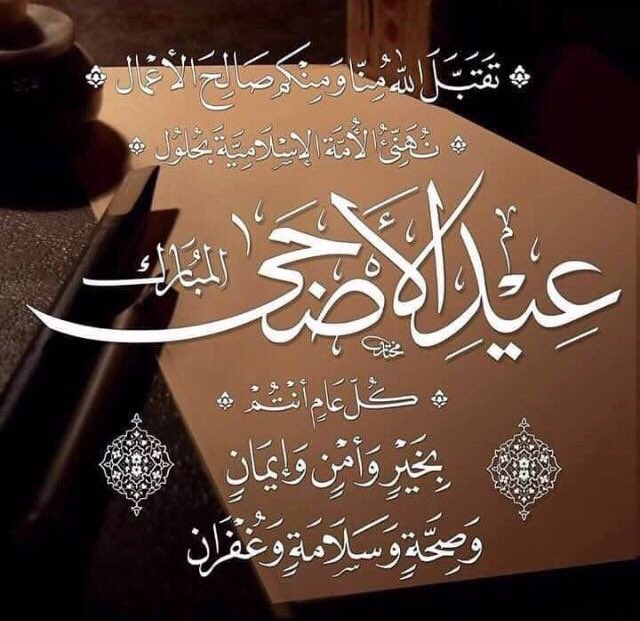 تَقَبَّلَ اللهُ مِنَّا وَمِنْكُم صَالِحَ الأَعْمَال
نُهَنِّئُ الأُمَّةَ الإِسْلَامِيَّةَ بِحُلُولِ
عِيْدِ الأَضْحَى المُبَارَك
كُلّ عَامٍ أَنْتُمْ
بِخَيْرٍ وَأَمْنٍ وَإِيمَانٍ
وَصِحَّةٍ وَسَلَامَةٍ وَغُفْرَان